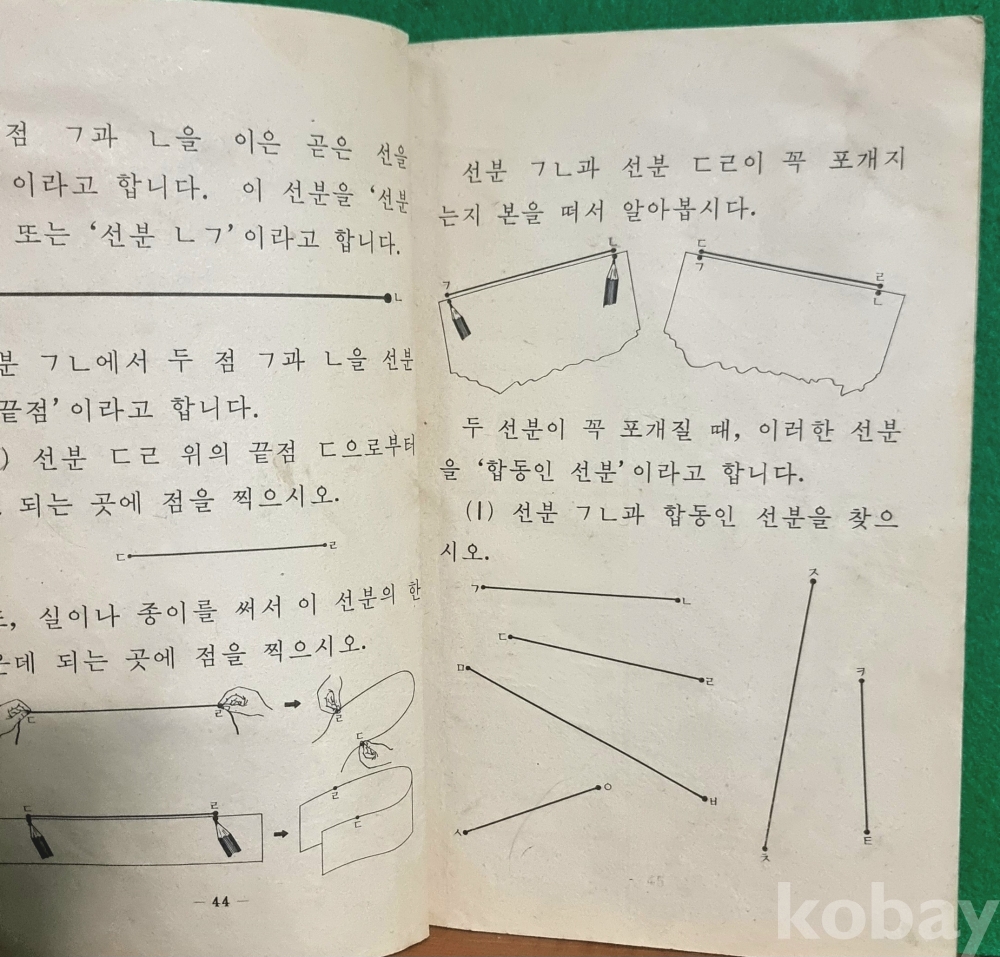 점 ㄱ과 ㄴ을 이은 곧은 선을
이라고 합니다. 이 선분을 ‘선분
또는 ‘선분 ㄴㄱ’이라고 합니다.
ㄴ
분 ㄱㄴ에서 두 점 ㄱ과 ㄴ을 선분
끝점’이라고 합니다.
) 선분 ㄷㄹ 위의 끝점 ㄷ으로부터
되는 곳에 점을 찍으시오.
ㄷ ㄹ
, 실이나 종이를 써서 이 선분의 한
운데 되는 곳에 점을 찍으시오.
ㄷ ㄹ ㄹ
ㄷ
ㄷ ㄹ ㄹ
ㄷ
— 44 —
선분 ㄱㄴ과 선분 ㄷㄹ이 꼭 포개지
는지 본을 떠서 알아봅시다.
ㄱ ㄴ ㄷ ㄹ
ㄱ ㄴ
두 선분이 꼭 포개질 때, 이러한 선분
을 ‘합동인 선분’이라고 합니다.
(1) 선분 ㄱㄴ과 합동인 선분을 찾으
시오.
ㄱ ㄴ
ㄷ ㄹ
ㅁ ㅂ
ㅅ ㅇ
ㅈ ㅊ
ㅋ ㅌ
45
kobay